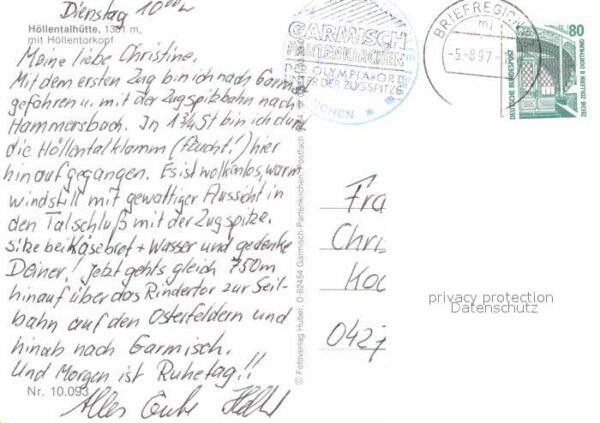 Dienstag 10⁰⁰
Höllentalhütte, 1381 m
mit Höllentorkopf
Meine liebe Christine.
Mit dem ersten Zug bin ich nach Garmi.
gefahren u. mit der Zugspitzbahn nach
Hammersbach. In 1¾ St bin ich durch
die Höllentalklamm (feucht!) hier
hinaufgegangen. Es ist wolkenlos, warm
windstill mit gewaltiger Aussicht in
den Talschluß mit der Zugspitze.
Sitze bei Käsebrot + Wasser und gedenke
Deiner! Jetzt gehts gleich 750m
hinauf über das Rindertor zur Seil-
bahn auf den Osterfeldern und
hinab nach Garmisch.
Und Morgen ist Ruhetag!!
Nr. 10.093
Alles Gute
© Fotoverlag Huber, D 82454 Garmisch-Partenkirchen, Postfach
GARMISCH
PARTENKIRCHEN
DER OLYMPIA-ORT
UNTER DER ZUGSPITZE
BRIEFREGION
mj
-5.-8.97
80
DEUTSCHE BUNDESPOST
ZECHE ZOLLERN II DORTMUND
Fra
Chri
Koc
0427
privacy protection
Datenschutz